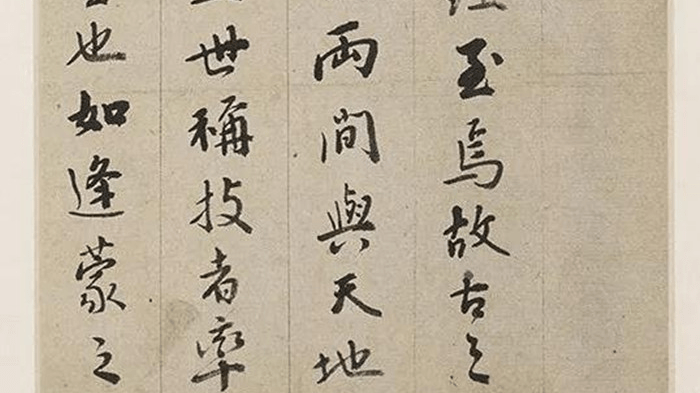 至焉故古之
兩間與天地
世稱技者率
也如逢蒙之